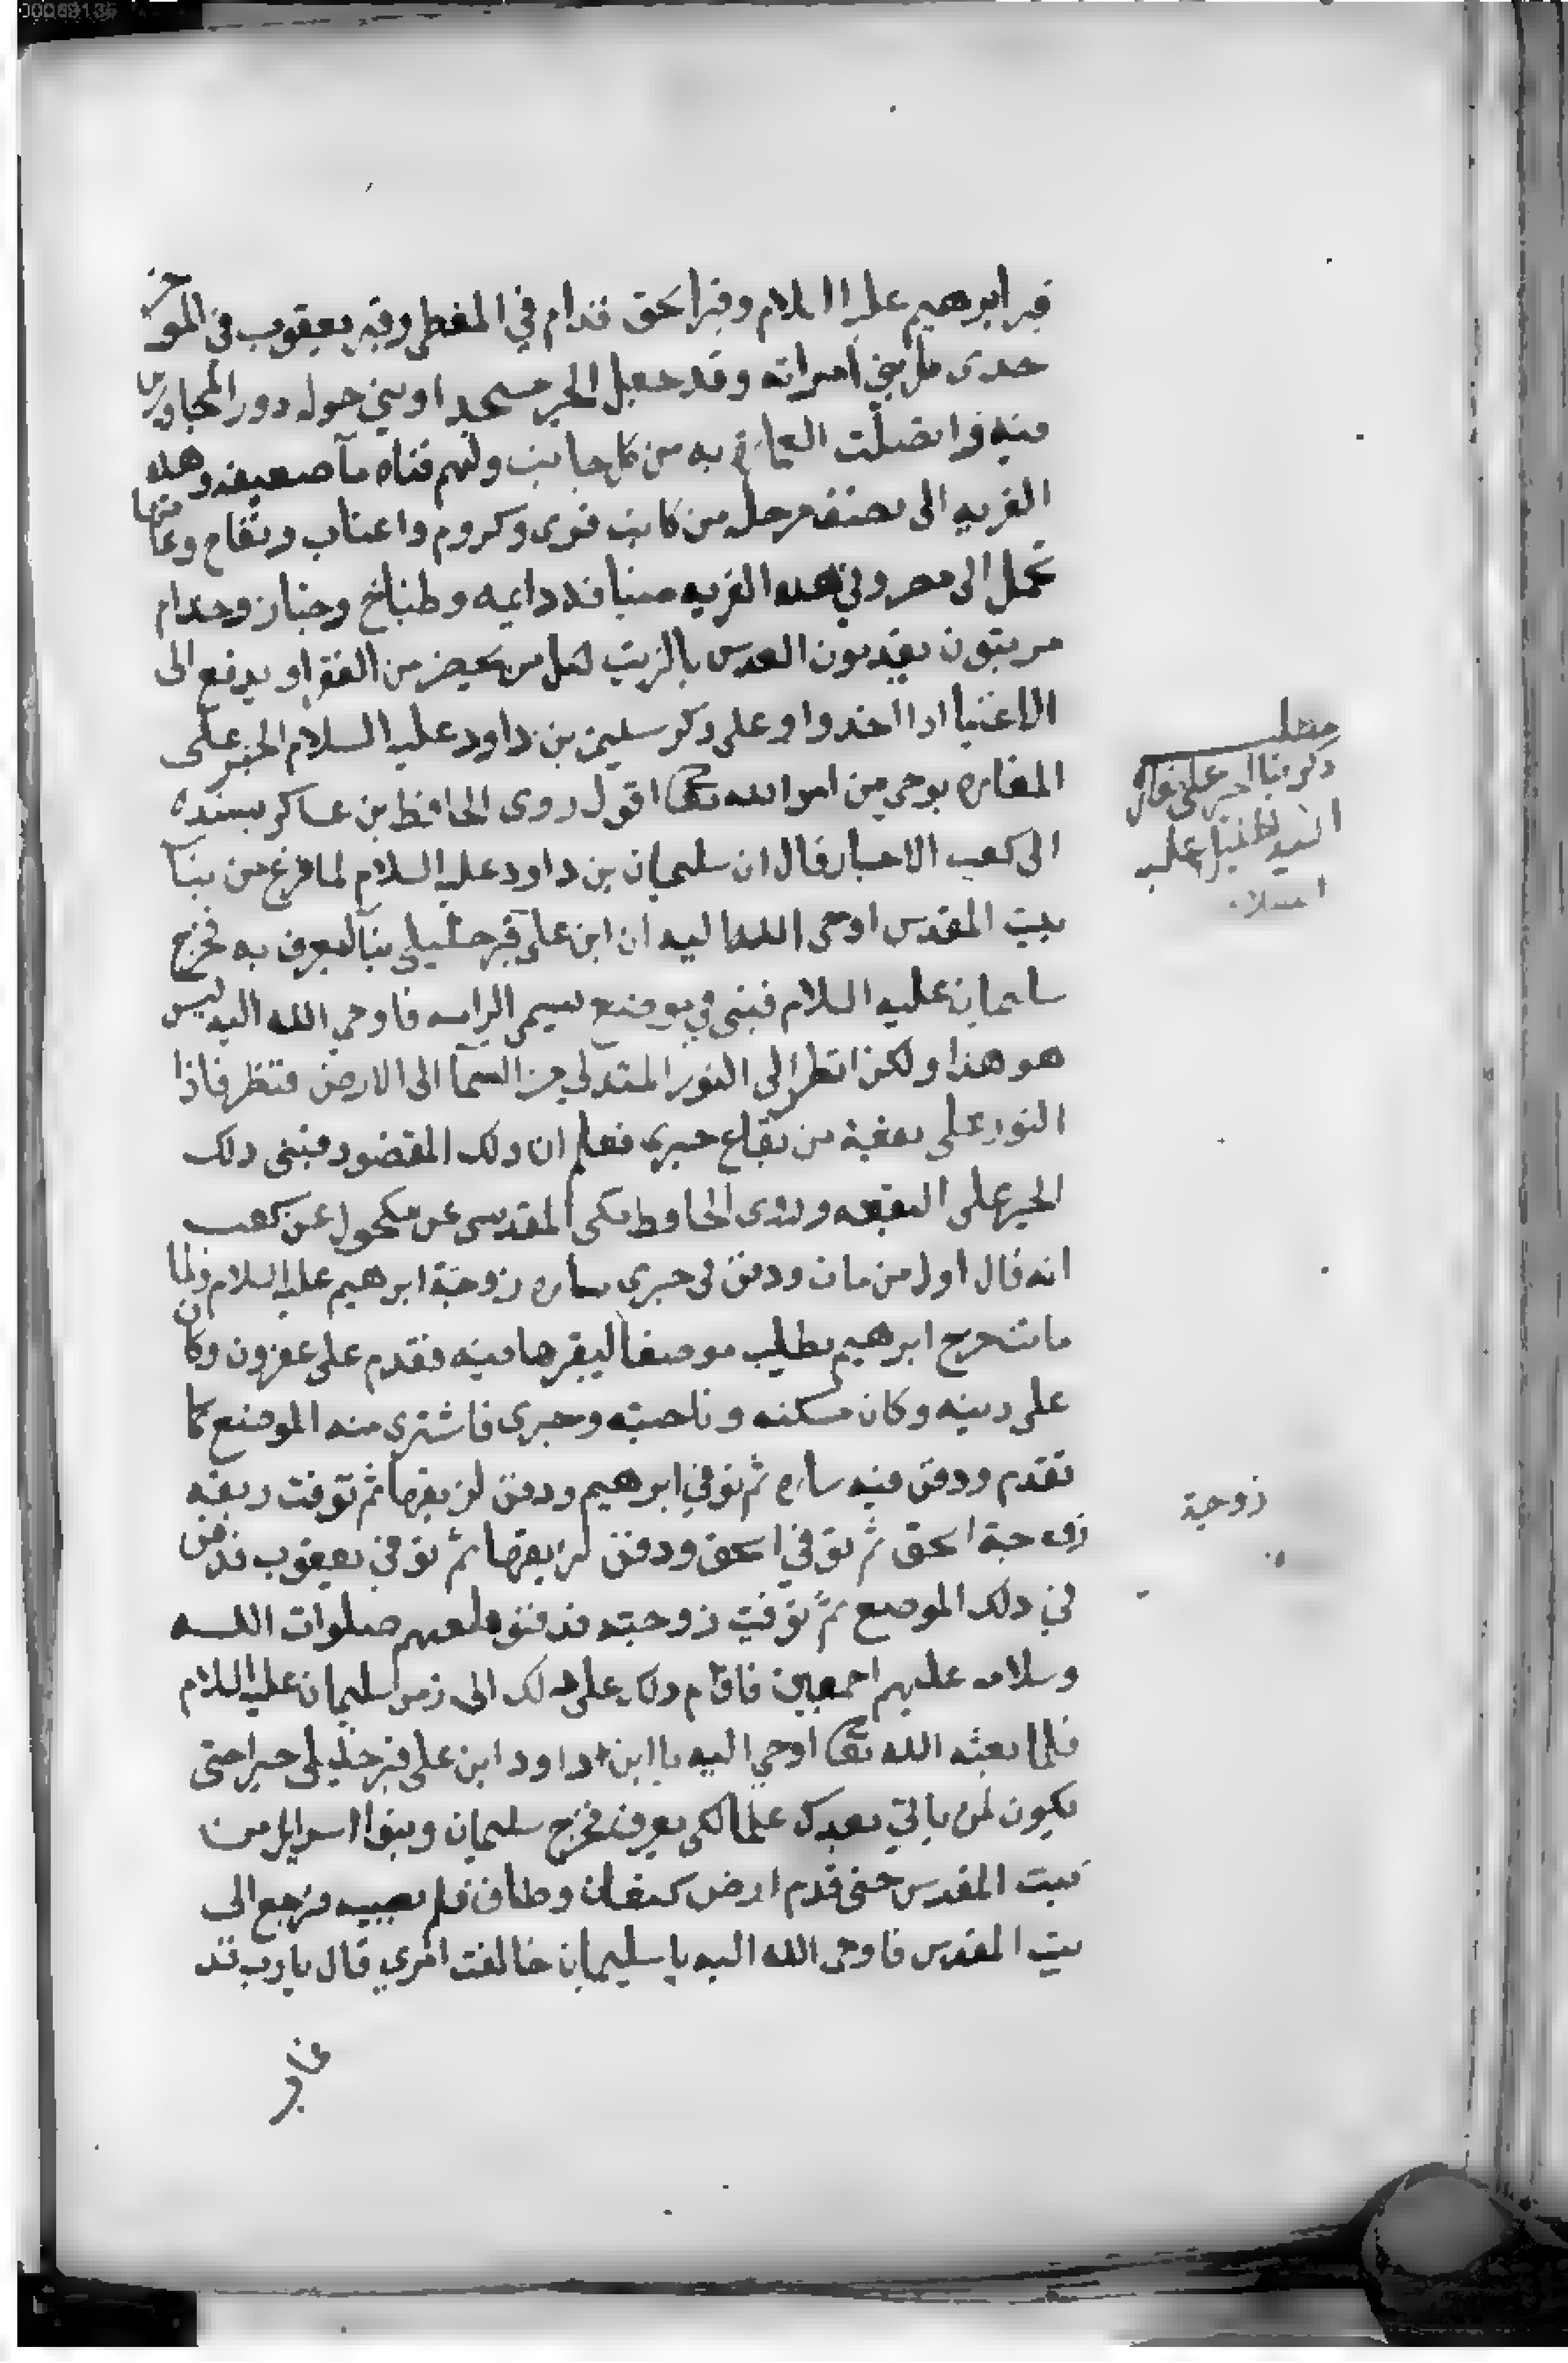 قبر ابرهيم عليه السلام وقبر اسحق قدام في المغطي وقبر يعقوب في المؤخر
حدى كل نبي امراته وقد جعل الحير مسجدا وبني حوله دور المجاورين
فيه واتصلت العمارة به من كل جانب ولهم قناه مآ ضعيفه وهذه
القريه الى نصف مرحله من كل جانب قرى وكروم واعناب وتفاح وعامتها
تحمل الى مصر وفي هذه القريه ضيافه دايمه وطباخ وخباز وخدام
مرتبون يقدمون العدس بالزيت لكل من يحضر من الفقرا ويدفع الى
الاغنيا اذا اخذوا وعلى ذكر سليمن بن داود عليه السلام الحير على
المغاره بوحي من امر الله تعالى اقول روى الحافظ بن عساكر بسنده
الى كعب الاحبار قال ان سليمان بن داود عليه السلام لما فرغ من بنآ
بيت المقدس اوحى الله اليه ان ابن على قبر خليلي بنآ ليعرف به فخرج
سليمان عليه السلام فبنى في موضع يسمى الرامه فاوحي الله اليه ليس
هو هذا ولكن انظر الى النور المتدلي من السمآ الى الارض فنظر فاذا
النور على بقعة من بقاع حبرى فعلم ان ذلك المقصود فبنى ذلك
الحير على البقعه وروى الحافظ مكى المقدسى عن مكحول عن كعب
انه قال اول من مات ودفن في حبرى ساره زوجة ابرهيم عليه السلام ولما
ماتت خرج ابرهيم يطلب موضعا ليقبرها فيه فقدم على عفرون وكان
على دينه وكان مسكنه وناحيته وحبرى فاشترى منه الموضع كما
تقدم ودفن فيه ساره ثم توفي ابرهيم ودفن لزيقها ثم توفت ربقه
زوجة اسحق ثم توفي اسحق ودفن لزيقها ثم توفي يعقوب فدفن
في ذلك الموضع ثم توفيت زوجته فدفنو معهم صلوات الله
وسلامه عليهم اجمعين فاقام ذلك على ذلك الى زمن سليمان عليه السلام
فلما بعثه الله تعالى اوحي اليه يا ابن داود ابن على قبر خليلي حيرا حتى
يكون لمن ياتي بعدك علما لكي يعرف فخرج سليمان وبنوا اسرايل من
بيت المقدس حتى قدم ارض كنعان وطاف فلم يصبه فرجع الى
بيت المقدس فاوحى الله اليه يا سليمان خالفت امري قال يا رب قد
مطلب
ذكر بنا الحير على مغارة
السيد الخليل عليه
السلام
زوجة
غاب